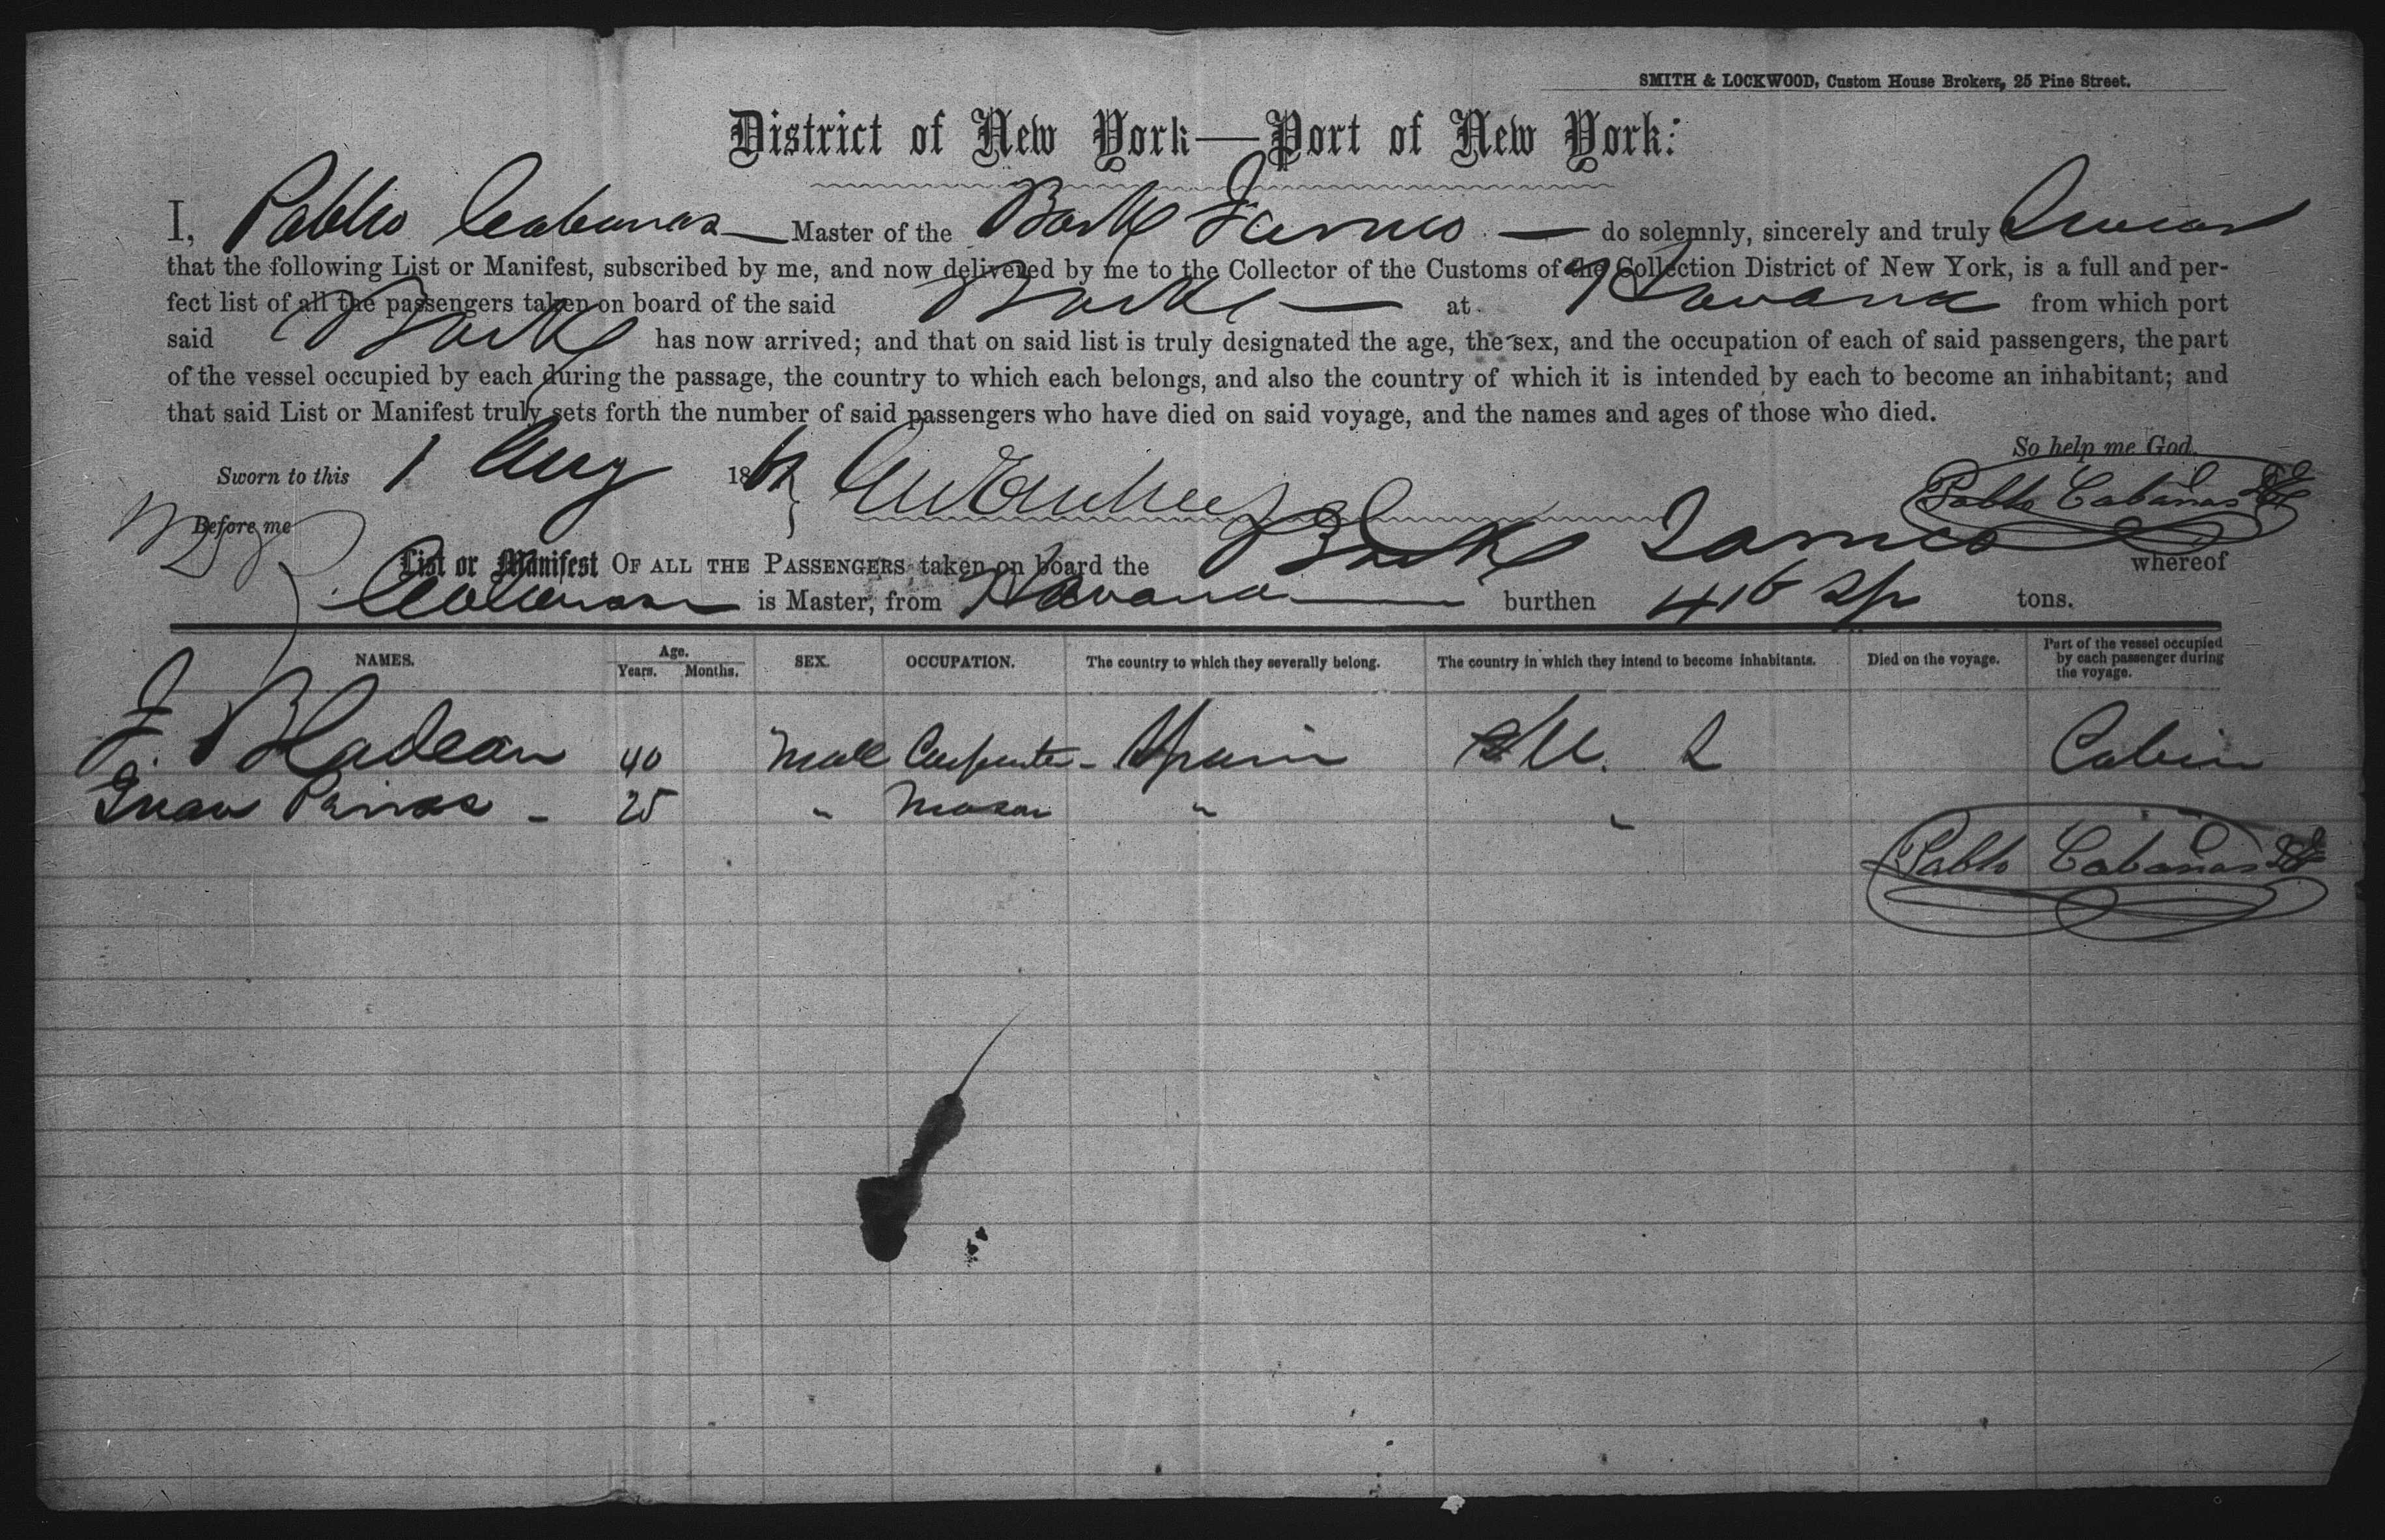 SMITH & LOCKWOOD, Custom House Brokers, 25 Pine Street.
District of New York—Port of New York:
I, Pablo Cabanas — Master of the Bark — do solemnly, sincerely and truly Swear
that the following List or Manifest, subscribed by me, and now delivered by me to the Collector of the Customs of the Collection District of New York, is a full and per-
fect list of all the passengers taken on board of the said Bark — at Havana from which port
said Bark has now arrived; and that on said list is truly designated the age, the sex, and the occupation of each of said passengers, the part
of the vessel occupied by each during the passage, the country to which each belongs, and also the country of which it is intended by each to become an inhabitant; and
that said List or Manifest truly sets forth the number of said passengers who have died on said voyage, and the names and ages of those who died.
So help me God.
Sworn to this 1 Aug 18
Pablo Cabanas
Before me
List or Manifest OF ALL THE PASSENGERS taken on board the Bark whereof
Cabanas — is Master, from Havana — burthen 416 tons.
NAMES. Age. Years. Months. SEX. OCCUPATION. The country to which they severally belong. The country in which they intend to become inhabitants. Died on the voyage. Part of the vessel occupied by each passenger during the voyage.
40 Male Carpenter - Spain U. S Cabin
Juan - 25 " Mason " "
Pablo Cabanas